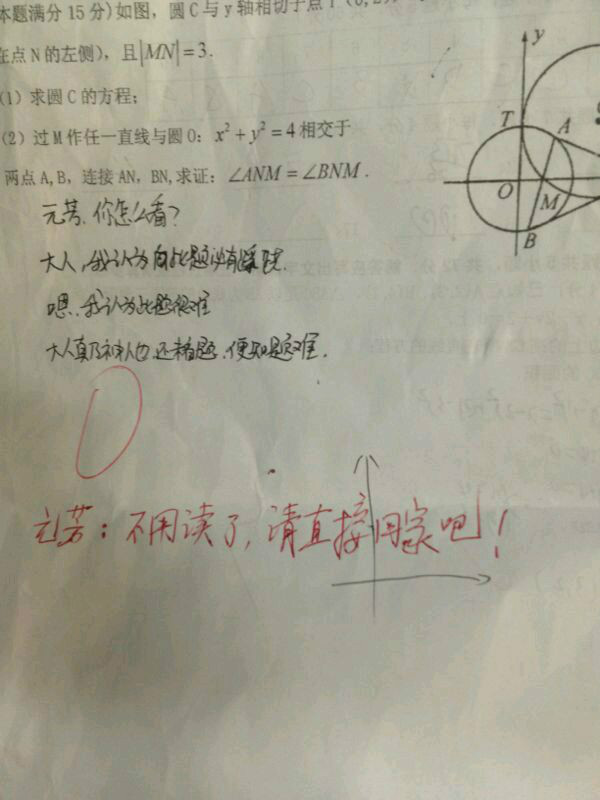 本题满分 15 分)如图，圆 C 与 y 轴相切于点 T (0, 2)，
在点 N 的左侧)，且|MN|=3.
(1) 求圆 C 的方程；
(2) 过 M 作任一直线与圆 O: x²+y²=4 相交于
两点 A,B，连接 AN，BN,求证: ∠ANM=∠BNM.
y
T
A
O
M
B
元芳，你怎么看?
大人，我认为此题必有蹊跷
嗯，我认为此题很难
大人真乃神人也，还未看题，便知题难.
0
元芳：不用读了，请直接回家吧！